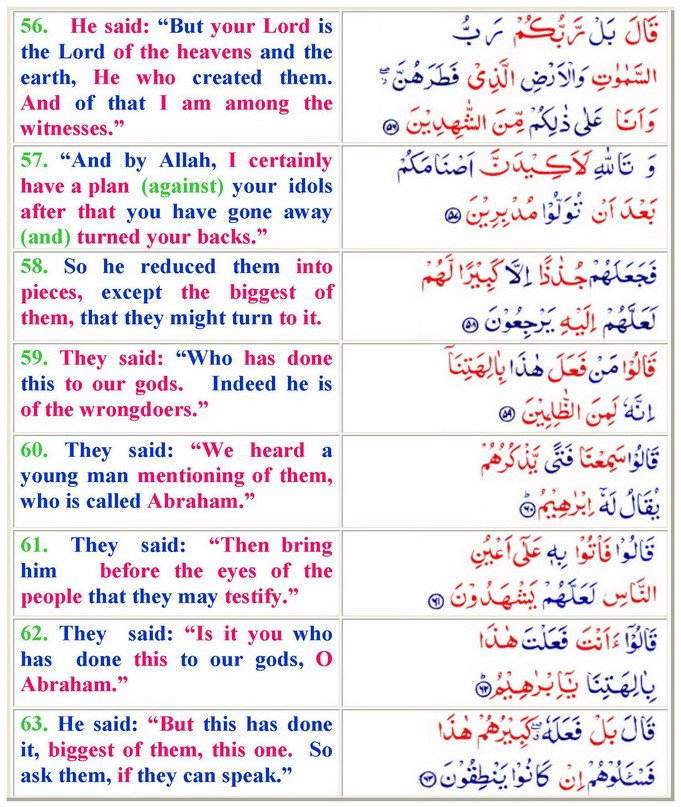 56. He said: “But your Lord is
the Lord of the heavens and the
earth, He who created them.
And of that I am among the
witnesses.”
قَالَ بَلْ رَّبُّكُمْ رَبُّ
السَّمٰوٰتِ وَالْاَرْضِ الَّذِيْ فَطَرَهُنَّ ۖ
وَاَنَا عَلٰى ذٰلِكُمْ مِّنَ الشّٰهِدِيْنَ ﴿۵۶﴾
57. “And by Allah, I certainly
have a plan (against) your idols
after that you have gone away
(and) turned your backs.”
وَ تَاللّٰهِ لَاَكِيْدَنَّ اَصْنَامَكُمْ
بَعْدَ اَنْ تُوَلُّوْا مُدْبِرِيْنَ ﴿۵۷﴾
58. So he reduced them into
pieces, except the biggest of
them, that they might turn to it.
فَجَعَلَهُمْ جُذٰذًا اِلَّا كَبِيْرًا لَّهُمْ
لَعَلَّهُمْ اِلَيْهِ يَرْجِعُوْنَ ﴿۵۸﴾
59. They said: “Who has done
this to our gods. Indeed he is
of the wrongdoers.”
قَالُوْا مَنْ فَعَلَ هٰذَا بِاٰلِهَتِنَاۤ
اِنَّهٗ لَمِنَ الظّٰلِمِيْنَ ﴿۵۹﴾
60. They said: “We heard a
young man mentioning of them,
who is called Abraham.”
قَالُوْا سَمِعْنَا فَتًى يَّذْكُرُهُمْ
يُقَالُ لَهٗۤ اِبْرٰهِيْمُ ؕ﴿۶۰﴾
61. They said: “Then bring
him before the eyes of the
people that they may testify.”
قَالُوْا فَاْتُوْا بِهٖ عَلٰۤى اَعْيُنِ
النَّاسِ لَعَلَّهُمْ يَشْهَدُوْنَ ﴿۶۱﴾
62. They said: “Is it you who
has done this to our gods, O
Abraham.”
قَالُوْۤا ءَاَنْتَ فَعَلْتَ هٰذَا
بِاٰلِهَتِنَا يٰۤاِبْرٰهِيْمُ ؕ﴿۶۲﴾
63. He said: “But this has done
it, biggest of them, this one. So
ask them, if they can speak.”
قَالَ بَلْ فَعَلَهٗ ۖ كَبِيْرُهُمْ هٰذَا
فَسْـَٔلُوْهُمْ اِنْ كَانُوْا يَنْطِقُوْنَ ﴿۶۳﴾